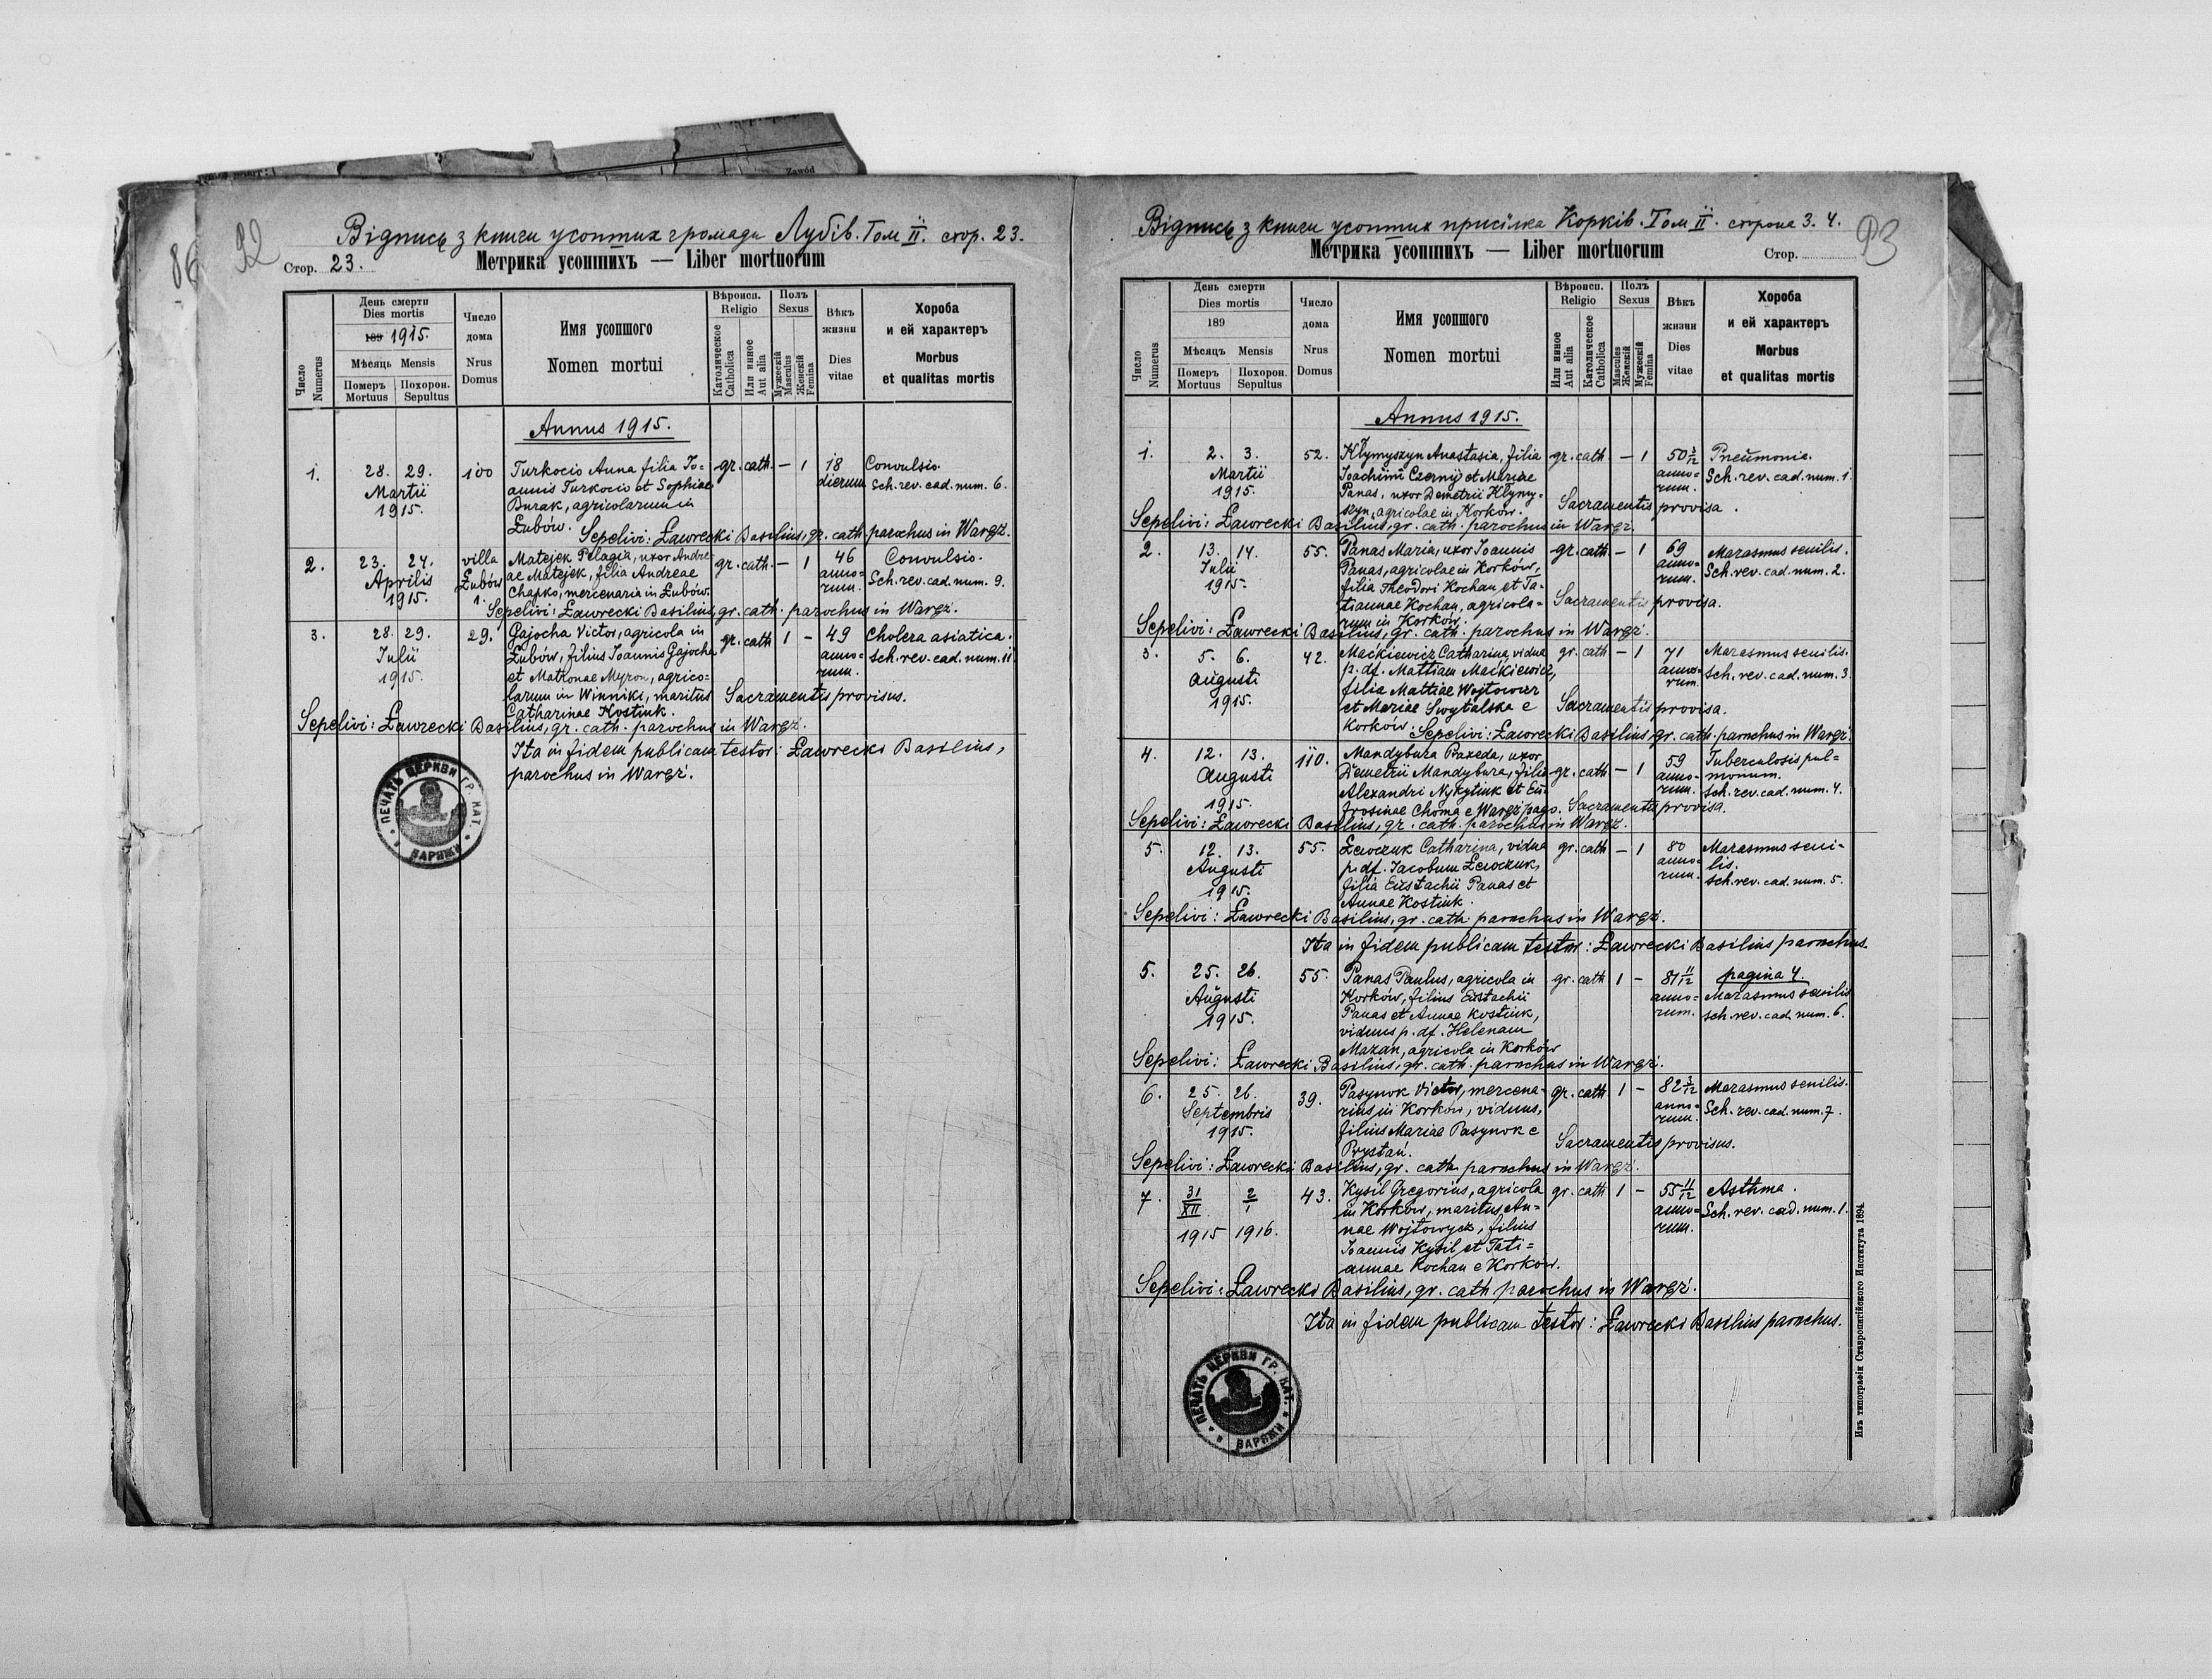 Zawód
86
92
Відпись з книги усопших громади Лубів. Том ІІ. стор. 23.
Стор. 23.
Метрика усопшихъ — Liber mortuorum
Число
Numerus
День смерти
Dies mortis
189 1915.
Мѣсяць Mensis
Померъ
Mortuus
Похорон.
Sepultus
Число
дома
Nrus
Domus
Имя усопшого
Nomen mortui
Вѣроисп.
Religio
Католическое
Catholica
Или инное
Aut alia
Полъ
Sexus
Мужескій
Masculus
Женскій
Femina
Вѣкъ
жизни
Dies
vitae
Хороба
и ей характеръ
Morbus
et qualitas mortis
Annus 1915.
1. 28. 29. 100 Turkocio Anna filia Jo= gr. cath. – 1 18 Convulsio.
Martii annis Turkocio et Sophiae dierum Sch. rev. cad. num. 6.
1915. Burak, agricolarum in
Łubów. Sepelivi: Ławrecki Basilius, gr. cath. parochus in Waręż.
2. 23. 24. villa Matejek Pelagia, uxor Andre- gr. cath. – 1 46 Convulsio.
Aprilis Łubów ae Matejek, filia Andreae anno= Sch. rev. cad. num. 9.
1915. 1. Chapko, mercenaria in Łubów. rum.
Sepelivi: Ławrecki Basilius, gr. cath. parochus in Waręż.
3. 28. 29. 29. Gajocha Victor, agricola in gr. cath 1 – 49 Cholera asiatica.
Julii Łubów, filius Joannis Gajocha anno= Sch. rev. cad. num. 11.
1915. et Matronae Myron, agrico= rum.
larum in Winniki, maritus Sacramentis provisus.
Catharinae Kostiuk.
Sepelivi: Ławrecki Basilius, gr. cath. parochus in Waręż.
Ita in fidem publicam testor: Ławrecki Basilius,
parochus in Waręż.
ПЕЧАТЬ ЦЕРКВИ ГР. КАТ.
ВАРЯЖИ
Відпись з книги усопших присілка Корків. Том ІІ. сторона 3. 4.
93
Метрика усопшихъ — Liber mortuorum
Стор.
Число
Numerus
День смерти
Dies mortis
189
Мѣсяцъ Mensis
Померъ
Mortuus
Похорон.
Sepultus
Число
дома
Nrus
Domus
Имя усопшого
Nomen mortui
Вѣроисп.
Religio
Или инное
Aut alia
Католическое
Catholica
Полъ
Sexus
Mascules
Женскій
Мужескій
Femina
Вѣкъ
жизни
Dies
vitae
Хороба
и ей характеръ
Morbus
et qualitas mortis
Annus 1915.
1. 2. 3. 52. Klymyszyn Anastasia, filia gr. cath – 1 50 Pneumonia.
Martii Joachimi Czernij et Mariae anno= Sch. rev. cad. num. 1.
1915. Panas, uxor Demetrii Klymy= rum.
szyn, agricolae in Korków. Sacramentis provisa.
Sepelivi: Ławrecki Basilius, gr. cath. parochus in Waręż.
2. 13. 14. 55. Panas Maria, uxor Joannis gr. cath – 1 69 Marasmus senilis.
Julii Panas, agricolae in Korków, anno= Sch. rev. cad. num. 2.
1915. filia Theodori Kochan et Ta- rum.
tiannae Kochan, agricola= Sacramentis provisa.
rum in Korków.
Sepelivi: Ławrecki Basilius, gr. cath. parochus in Waręż.
3. 5. 6. 42. Mackiewicz Catharina, vidua gr. cath – 1 71 Marasmus senilis.
Augusti p. df. Mattiam Mackiewicz, anno= Sch. rev. cad. num. 3.
1915. filia Mattiae Wojtowicz rum.
et Mariae Swytalska e Sacramentis provisa.
Korków. Sepelivi: Ławrecki Basilius, gr. cath. parochus in Waręż.
4. 12. 13. 110. Mandybura Paxeda, uxor gr. cath – 1 59 Tuberculosis pul=
Augusti Demetrii Mandybura, filia anno= monum.
1915. Alexandri Nykytiuk et Eu= rum. Sch. rev. cad. num. 4.
frosinae Choma e Waręż pago. Sacramentis provisa.
Sepelivi: Ławrecki Basilius, gr. cath. parochus in Waręż.
5. 12. 13. 55. Lewczuk Catharina, vidua gr. cath – 1 80 Marasmus seni-
Augusti p. df. Jacobum Lewczuk, anno= lis.
1915. filia Eustachii Panas et rum. Sch. rev. cad. num. 5.
Annae Kostiuk.
Sepelivi: Ławrecki Basilius, gr. cath. parochus in Waręż.
Ita in fidem publicam testor: Ławrecki Basilius parochus.
5. 25. 26. 55. Panas Paulus, agricola in gr. cath 1 – 81 11/12 pagina 4.
Augusti Korków, filius Eustachii anno= Marasmus senilis
1915. Panas et Annae Kostiuk, rum. Sch. rev. cad. num. 6.
viduus p. df. Helenam
Mazan, agricola in Korków
Sepelivi: Ławrecki Basilius, gr. cath. parochus in Waręż.
6. 25. 26. 39. Pasynok Victor, mercena- gr. cath 1 – 82 3/12 Marasmus senilis.
Septembris rius in Korków, viduus, anno= Sch. rev. cad. num. 7.
1915. filius Mariae Pasynok e rum.
Prystań. Sacramentis provisus.
Sepelivi: Ławrecki Basilius, gr. cath. parochus in Waręż.
7. 31/XII 2/I 43. Kysil Gregorius, agricola gr. cath 1 – 55 11/12 Asthma.
in Korków, maritus An= anno= Sch. rev. cad. num. 1.
1915 1916. nae Wojtowycz, filius rum.
Joannis Kysil et Tati=
annae Kochan e Korków.
Sepelivi: Ławrecki Basilius, gr. cath parochus in Waręż.
Ita in fidem publicam testor: Ławrecki Basilius parochus.
ПЕЧАТЬ ЦЕРКВИ ГР. КАТ.
в ВАРЯЖИ
Изъ типографіи Ставропигійского Института 1894.